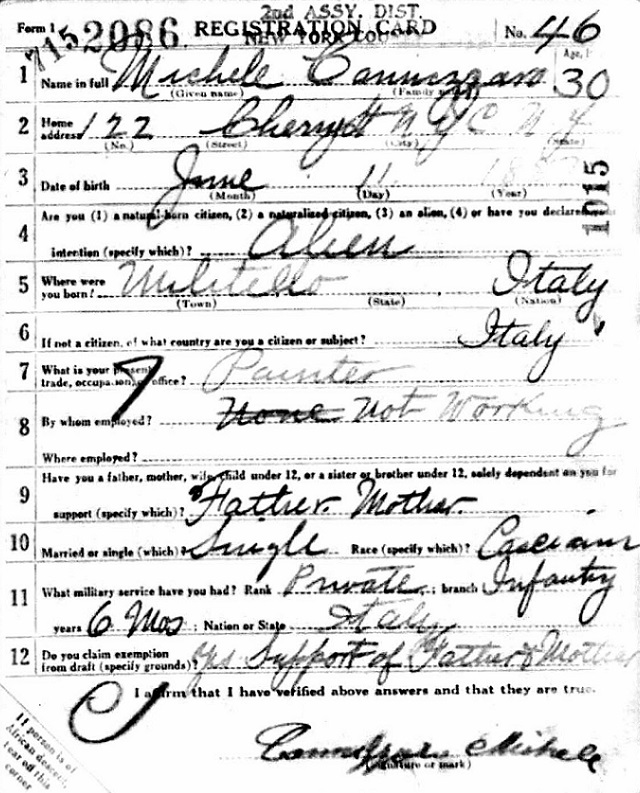 Form 1 715 2086 2nd ASSY. DIST. REGISTRATION CARD No. 46
NEW YORK
1 Name in full Michele Age, 30
(Given name) (Family name)
2 Home address 122 Cherry St N.Y.C. N.Y.
(No.) (Street) (City) (State)
3 Date of birth June 11
(Month) (Day) (Year)
1015
Are you (1) a natural-born citizen, (2) a naturalized citizen, (3) an alien, (4) or have you declared your
4 intention (specify which)? Alien
5 Where were you born? Militello Italy
(Town) (State) (Nation)
6 If not a citizen, of what country are you a citizen or subject? Italy
7 What is your present trade, occupation, or office? Painter
8 By whom employed? None Not Working
Where employed?
Have you a father, mother, wife, child under 12, or a sister or brother under 12, solely dependent on you for
9 support (specify which)? Father. Mother.
10 Married or single (which)? Single Race (specify which)?
11 What military service have you had? Rank Private ; branch Infantry
years 6 Mos ; Nation or State Italy
12 Do you claim exemption from draft (specify grounds)? Yes Support of Father & Mother
I affirm that I have verified above answers and that they are true.
Michele
(Signature or mark)
If person is of
African descent,
tear off this
corner